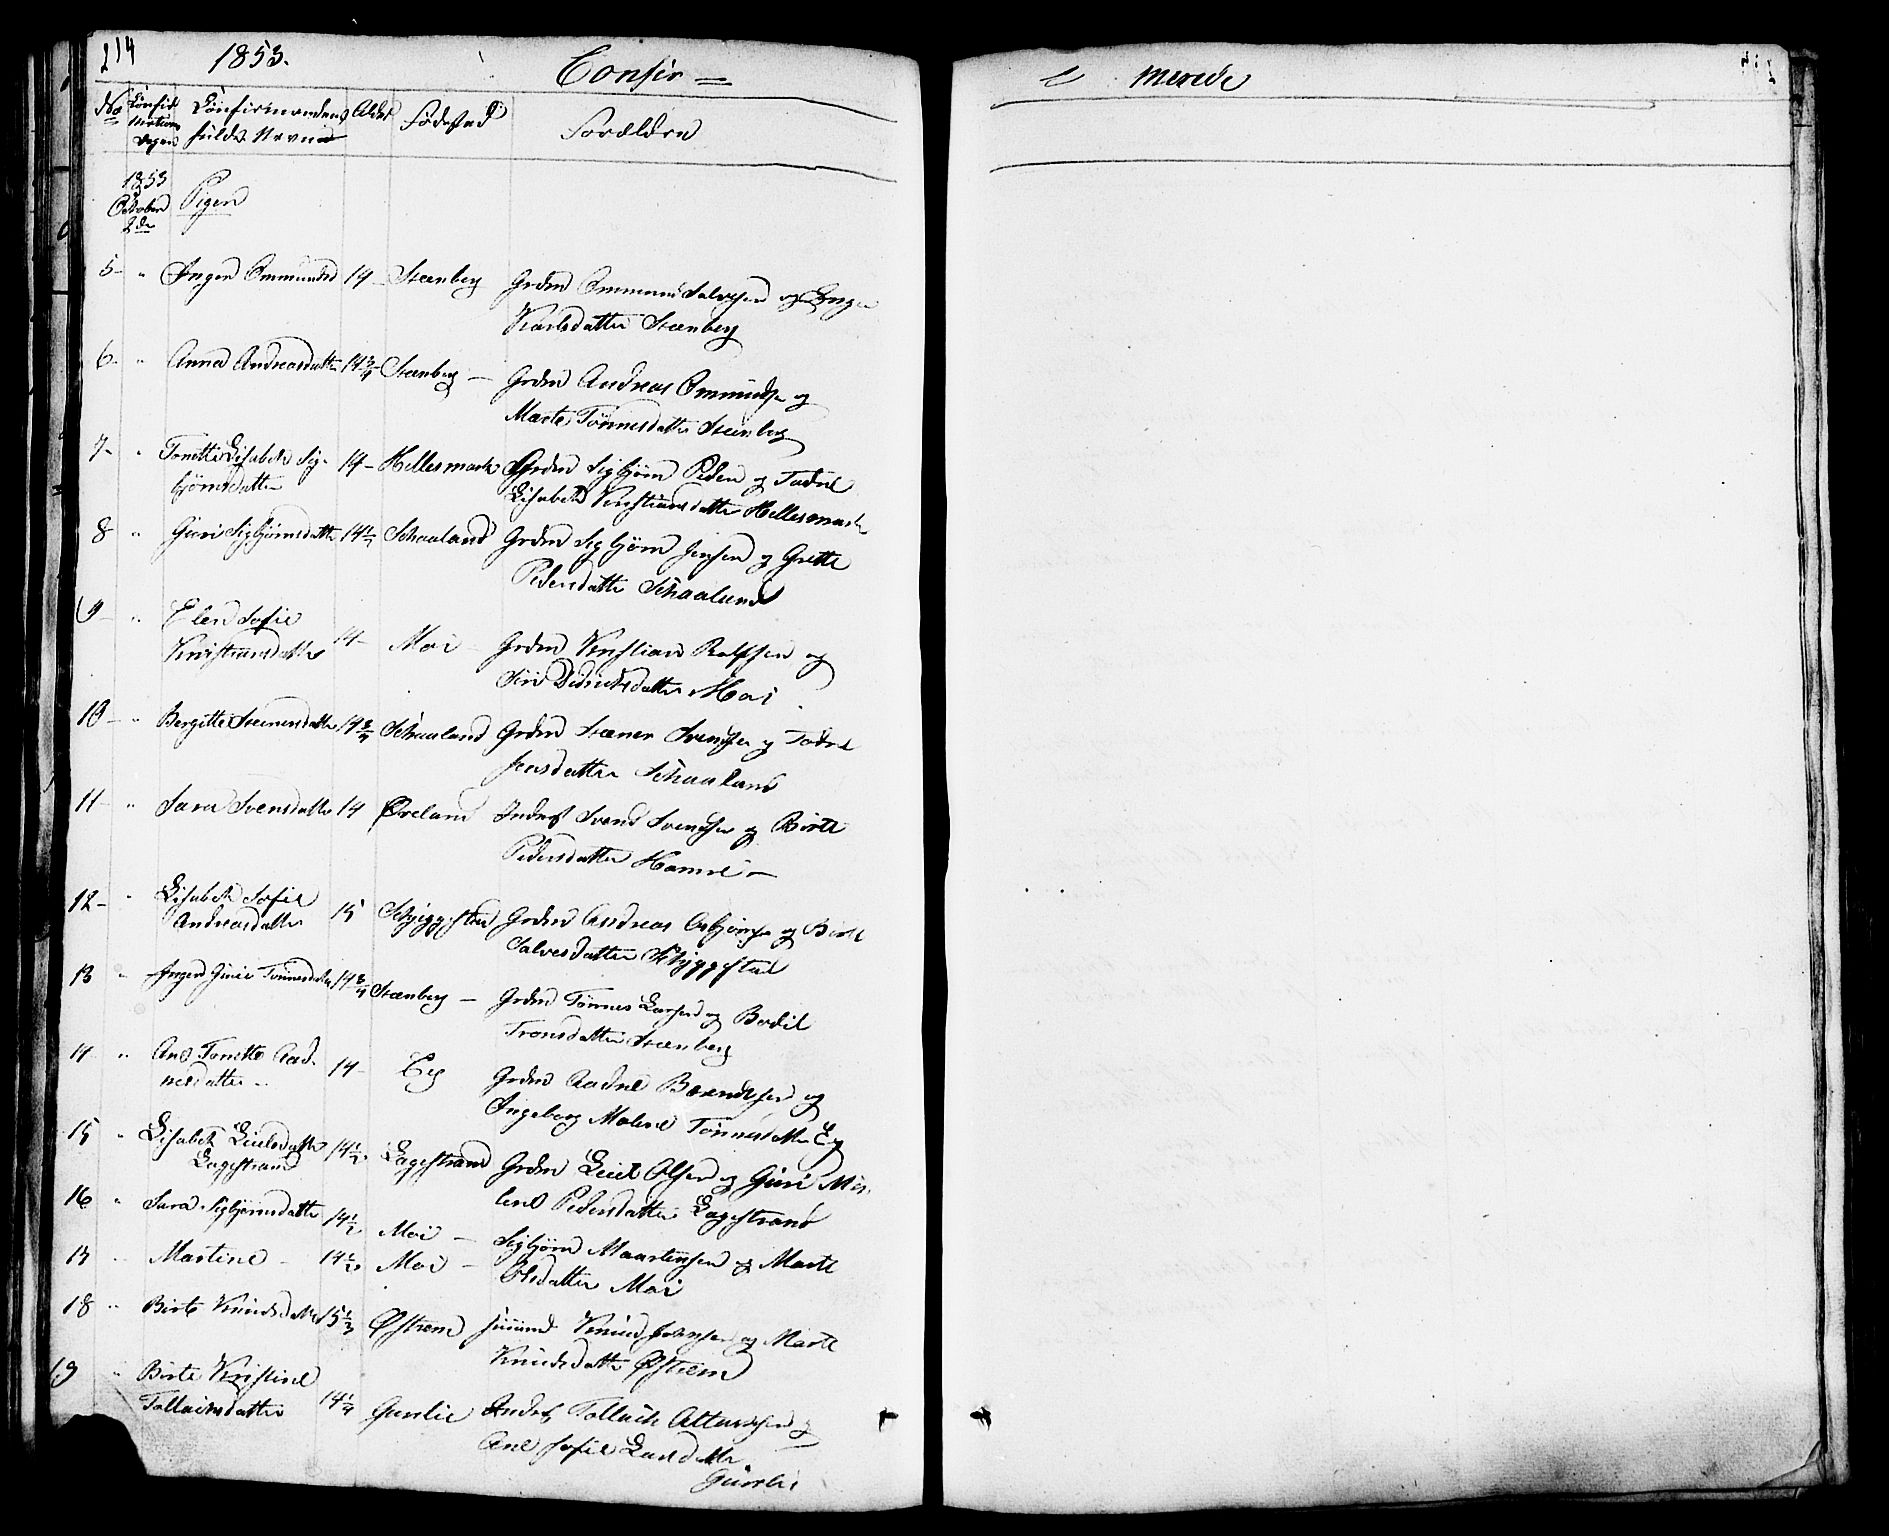 214 1853. Confir=
merede
No Confirmations Dagen Confirmandens fulde Navn Alder Fødested Forældre
1853 October 2de Pigen
5 - " Inger Ommunds 14 - Steenberg Grdm Ommund Salvesen og Inger
Karlsdatter Steenberg
6. " Anna Andreasdatter 14 3/4 Steenberg - Grdm Andreas Ommundsen og
Marte Tønnesdatter Steenberg
7- " Tonette Lisabeth Sig- 14 - Hellesmark Grdm Sigbjørn Peder og
bjørnsdatter Lisabeth Kristiansdatter Hellesmark
8 " Guri Sigbjørnsdatter 14 1/2 Schaaland Grdm Sigbjørn Jensen og Grette
Pedersdatter Schaaland
9 - " Elen Sofie
Kristiansdatter 14 - Moi - Grdm Kristian Rolfsen og
Siri Didriksdatter Moi
10 - " Bergitte Steenersdatter 14 3/4 Schaaland Grdm Steener Svendsen og Todne
Jensdatter Schaaland
11 - " Sara Svensdatter 14 Øreland Inderst Svend Svendsen og Birte
Pedersdatter Hamre -
12 - " Lisabeth Sofie
Andreasdatter 15 Schyggestad Grdm Andreas Asbjørnsen og Birte
Salvesdatter Skyggestad
13 " Inger Gurie Tønnesdatter 14 3/4 Steenberg - Grdm Tønnes Larsen og Bodil
Tronsdatter Steenberg
14 " Ane Tonette Aad-
nesdatter 14 - Eeg Grdm Aadne Berentsen og
Ingeborg Malene Tønnesdatter Eeg
15 " Lisabeth Leulsdatter 14 1/2 Lagestrand Grdm Olsen og Guri Ma-
Lagestrand lene Pedersdatter Lagestrand
16 " Sara Sigbjørnsdatter 14 1/2 Moi - Sigbjørn Maartensen og Marte
17 " Martine - 14 1/2 Moi - Olsdatter Moi
18 " Birte Knudsdatter 15 1/3 Østrem Knud og Marte
Knudsdatter Østrem
19 " Birte Kristine
Tollaksdatter 14 1/4 Gunlie Inderst Tollack og
Ane Sofie Larsdatter
Gunlie